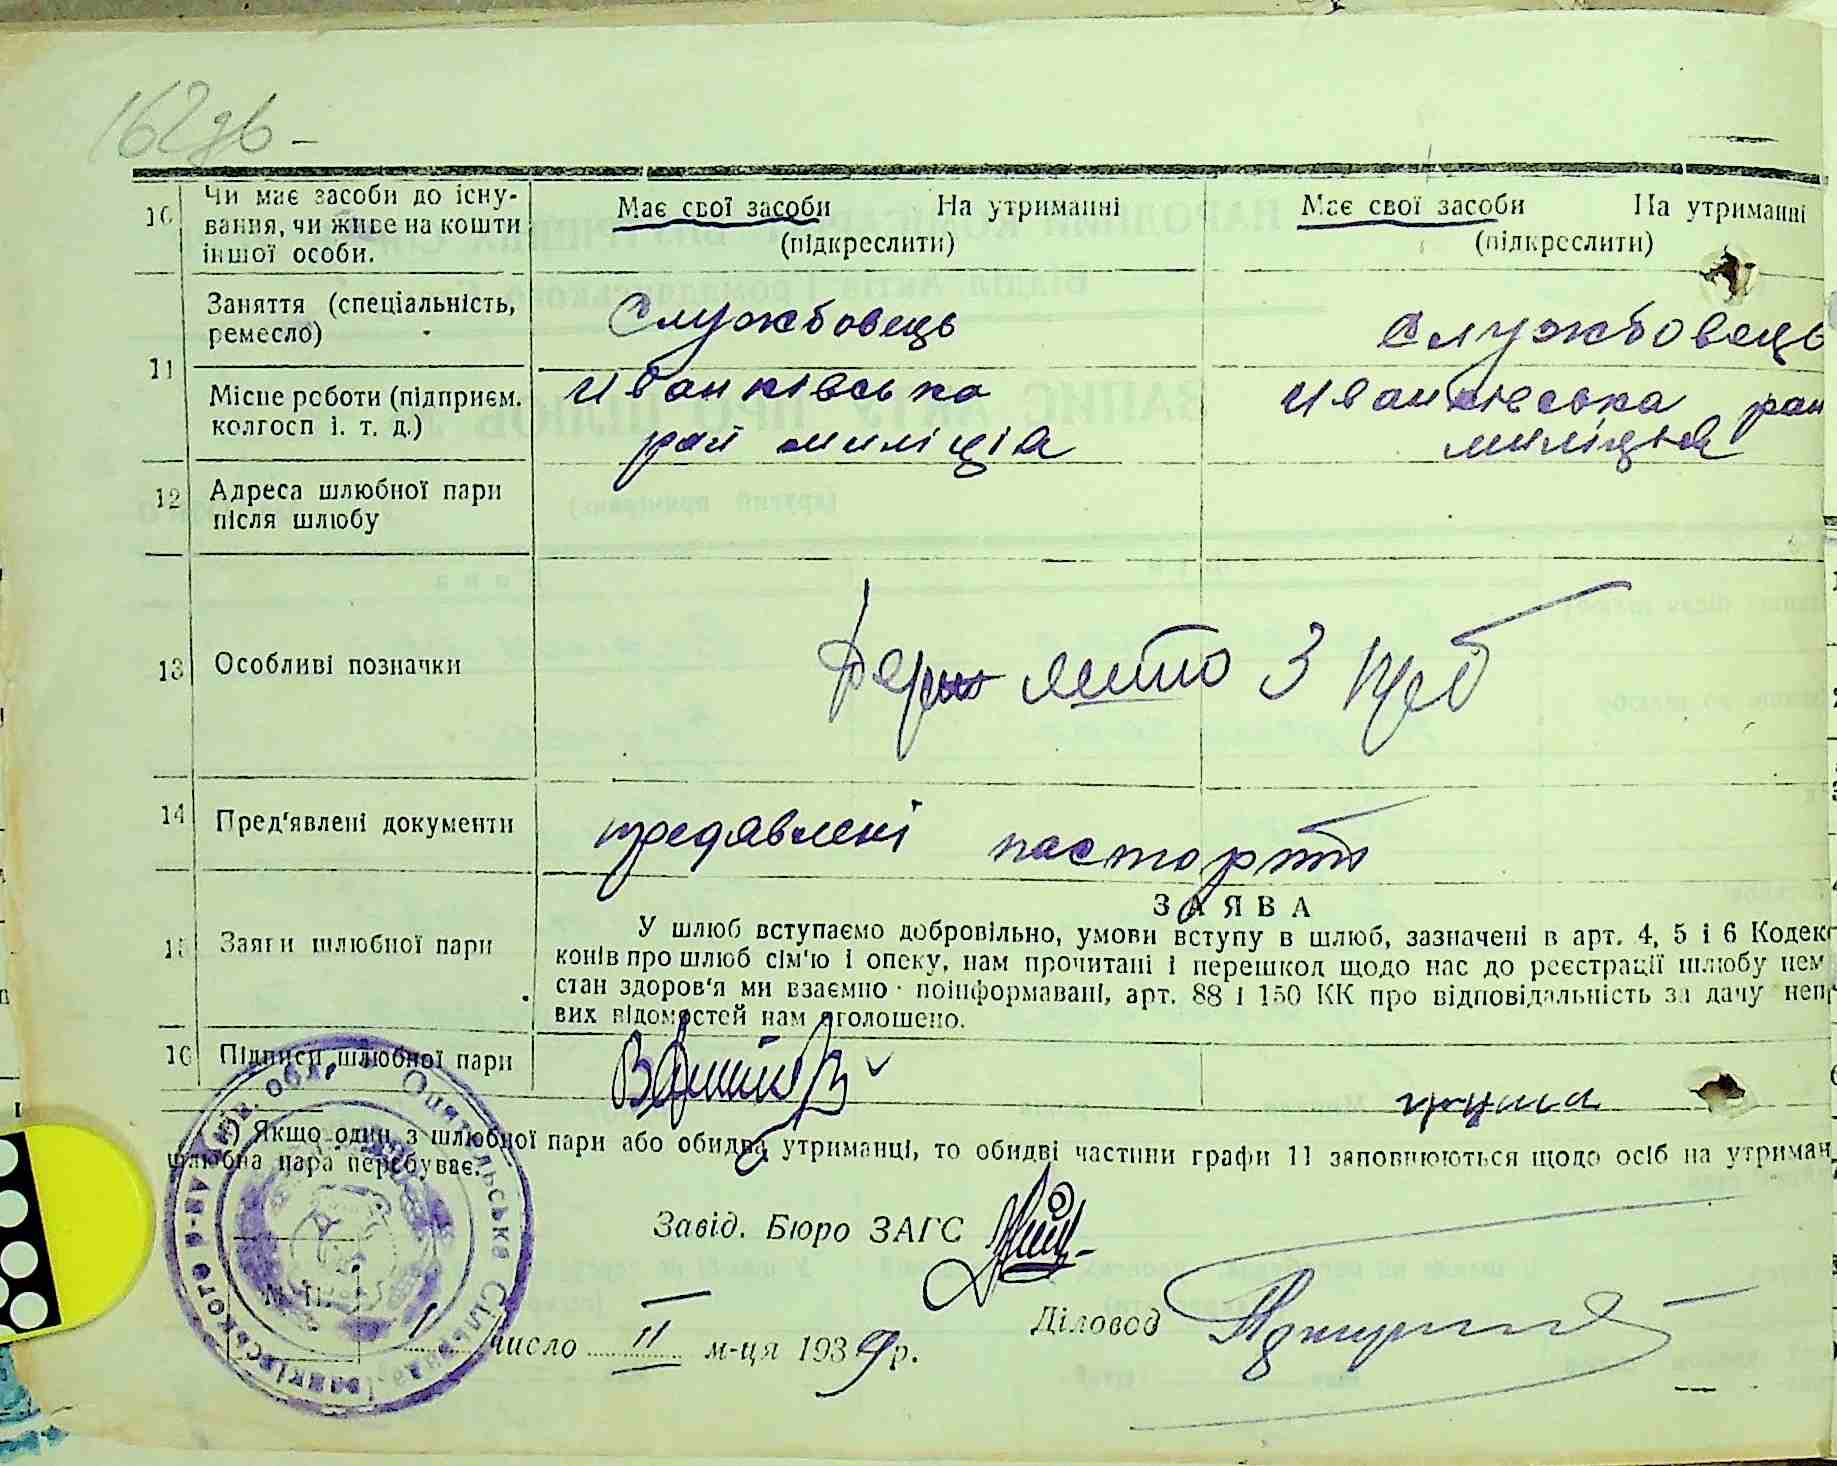 162зв-
10 Чи має засоби до існу- Має свої засоби На утриманні Має свої засоби На утриманні
вання, чи живе на кошти (підкреслити) (підкреслити)
іншої особи.
Заняття (спеціальність, Службовець Службовець
ремесло)
11
Місце роботи (підприєм. Иванківська Иванківська рай
колгосп і. т. д.) рай миліція миліція
12 Адреса шлюбної пари
після шлюбу
13 Особливі позначки Держ мито 3 крб
14 Пред'явлені документи предявлені паспорти
ЗАЯВА
У шлюб вступаємо добровільно, умови вступу в шлюб, зазначені в арт. 4, 5 і 6 Кодек
15 Заяви шлюбної пари конів про шлюб сім'ю і опеку, нам прочитані і перешкод щодо нас до реєстрації шлюбу нем
стан здоров'я ми взаємно поінформавані, арт. 88 і 150 КК про відповідальність за дачу непр
вих відомостей нам оголошено.
16 Підписи шлюбної пари
) Якщо один з шлюбної пари або обидва утриманці, то обидві частини графи 11 заповнюються щодо осіб на утриман
шлюбна пара перебуває.
Завід. Бюро ЗАГС
Діловод
М. П.
1 число II м-ця 1939 р.